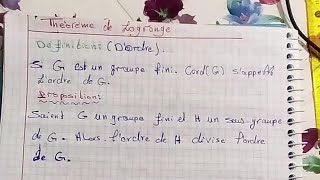 Théorème de Lagrange
Définitions (D'ordre).
Si G est un groupe fini. Cord(G) s'appelle
L'ordre de G.
Propositions
Soient G un groupe fini et H un sous-groupe
de G. Alors l'ordre de H divise l'ordre
de G.